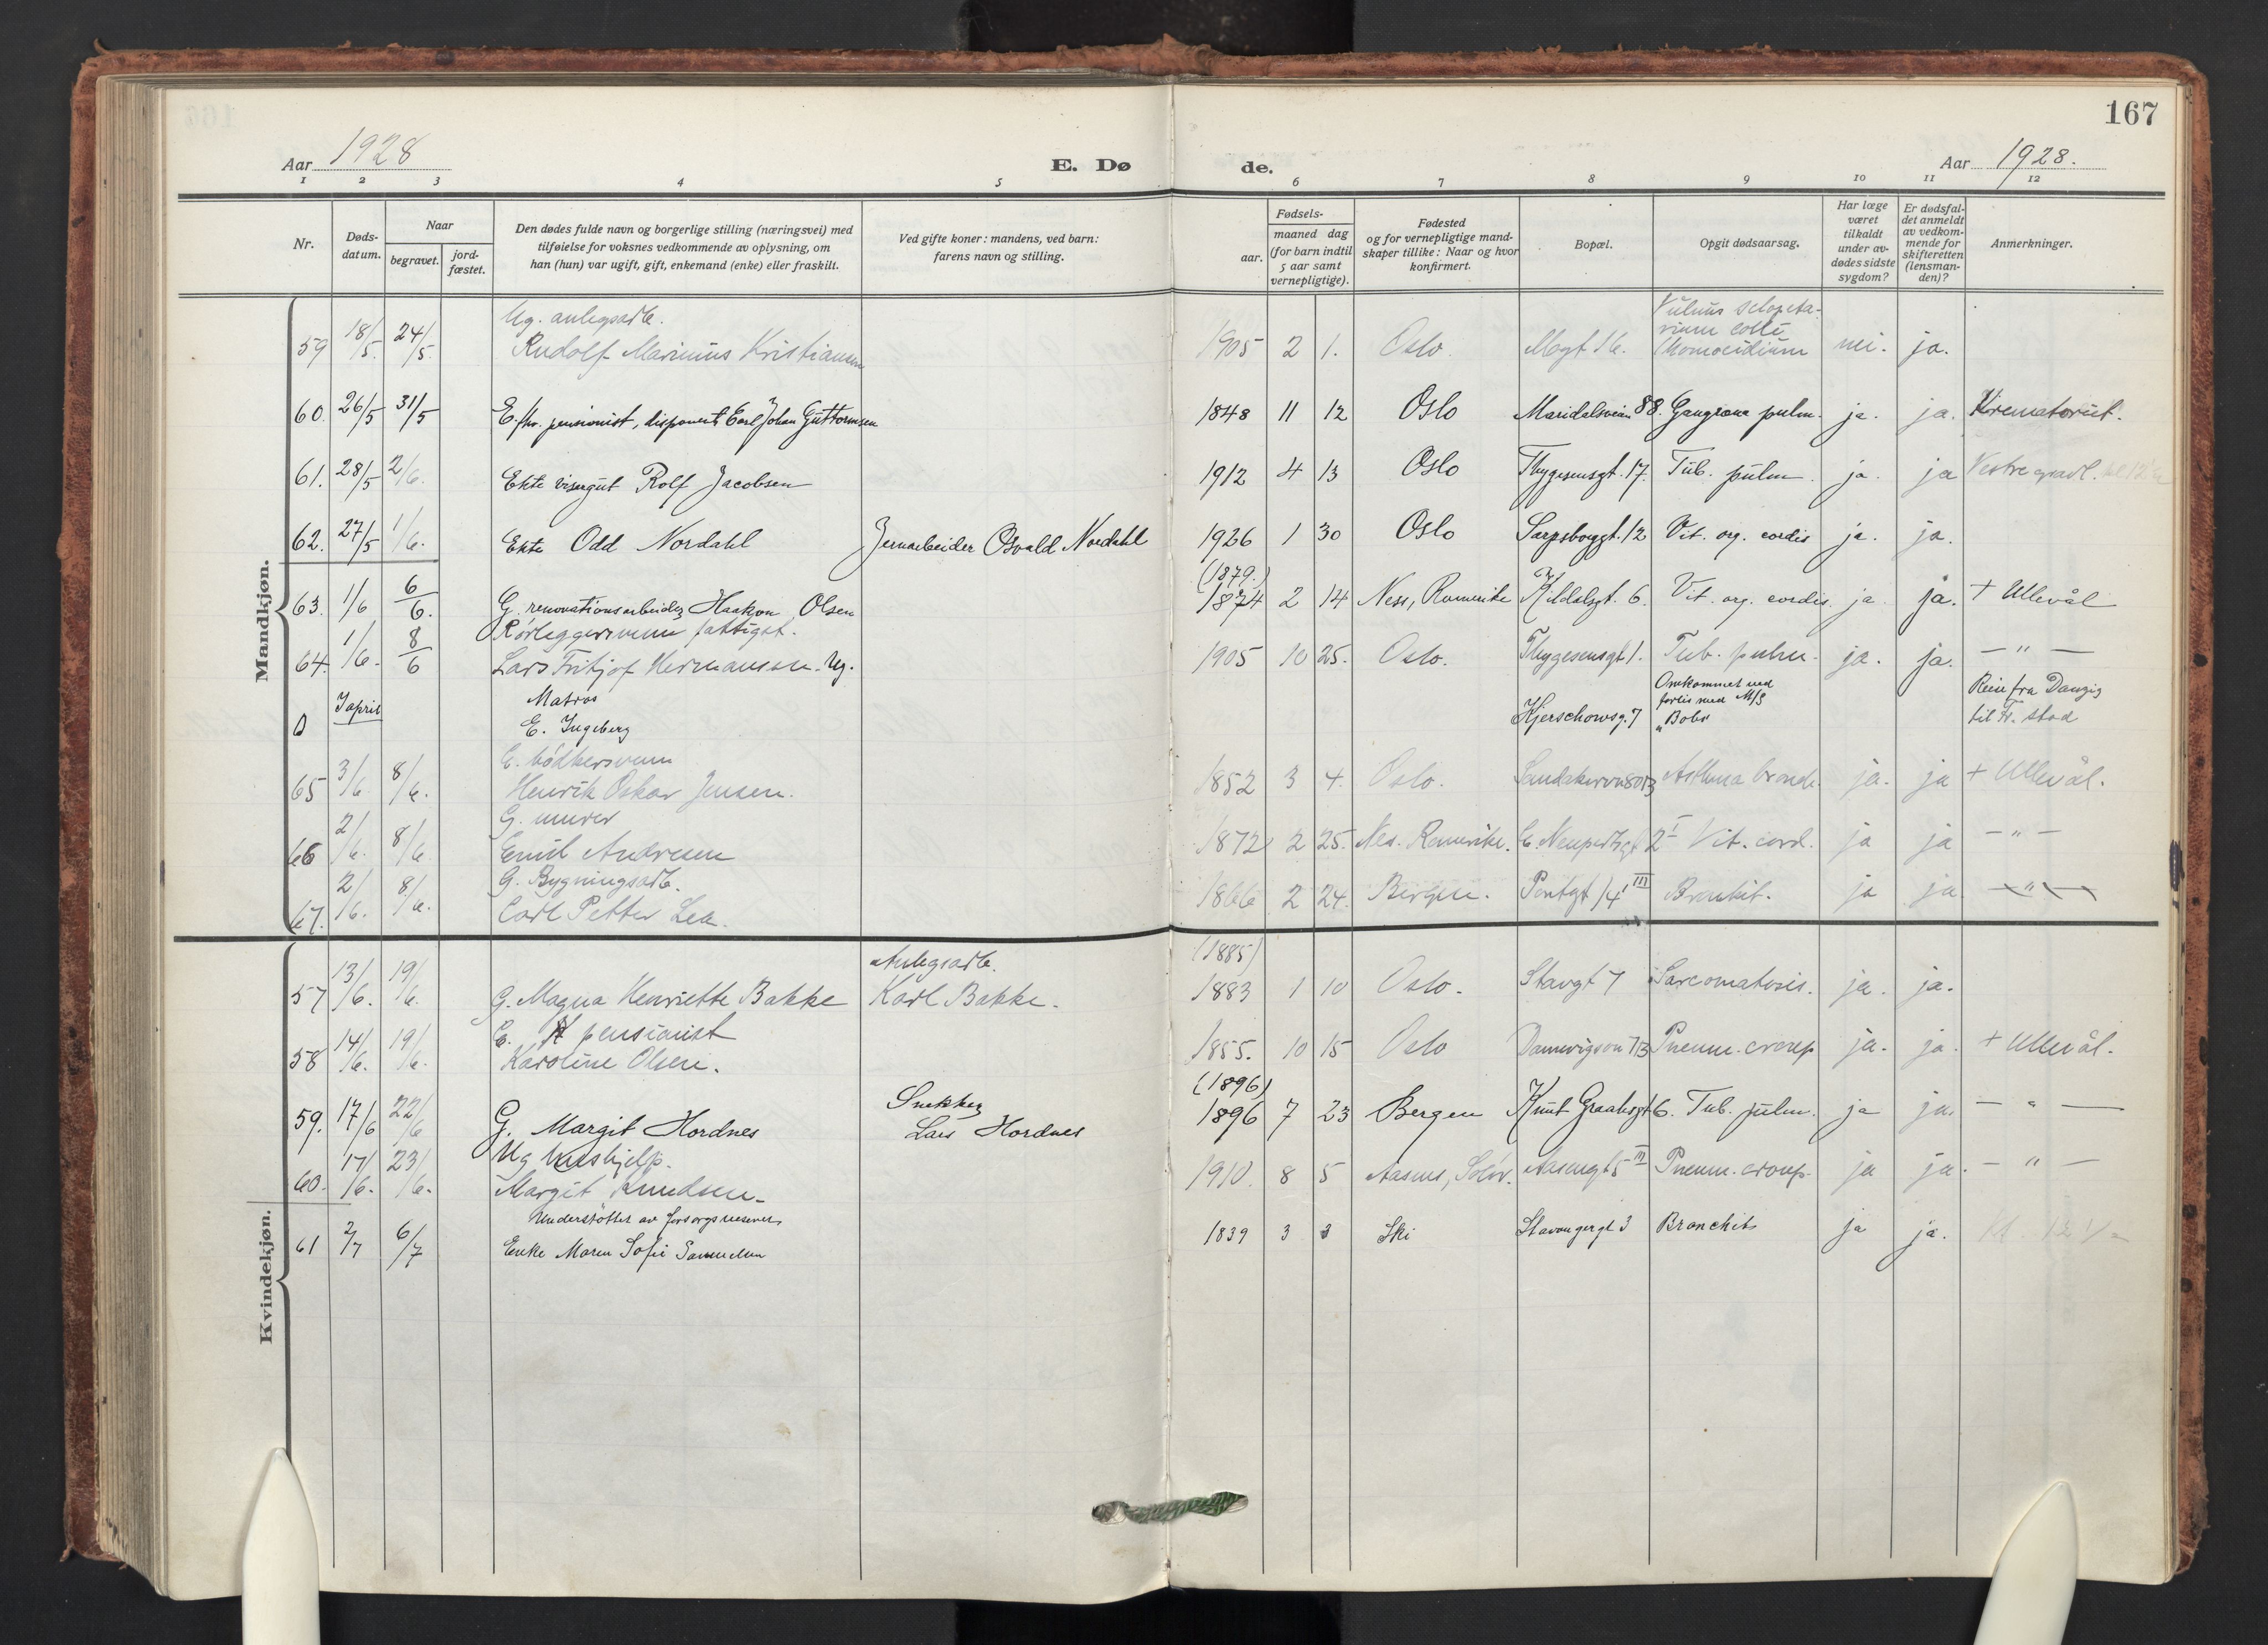 167
Aar 1928
E. Dø
de.
Aar 1928.
1 2 3 4 5 6 7 8 9 10 11 12
Nr.
Døds-
datum.
Naar
begravet.
jord-
fæstet.
Den dødes fulde navn og borgerlige stilling (næringsvei) med
tilføielse for voksnes vedkommende av oplysning, om
han (hun) var ugift, gift, enkemand (enke) eller fraskilt.
Ved gifte koner: mandens, ved barn:
farens navn og stilling.
Fødsels-
aar.
maaned dag
(for barn indtil
5 aar samt
vernepligtige).
Fødested
og for vernepligtige mand-
skaper tillike: Naar og hvor
konfirmert.
Bopæl.
Opgit dødsaarsag.
Har læge
været
tilkaldt
under av-
dødes sidste
sygdom?
Er dødsfal-
det anmeldt
av vedkom-
mende for
skifteretten
(lensman-
den)?
Anmerkninger.
Mandkjøn.
Ug. anlegsarb. Vulnus sclopeta-
rium colli
59 18/5. 24/5. Rudolf Marinius Kristiansen 1905 2 1. Oslo. Mogt 16. (homocidium nei. ja.
60. 26/5 31/5 E. fhv. pensionist, disponent Carl Johan Guttormsen 1848 11 12 Oslo Maridalsveien 88. Gangræna pulm. ja. ja. Krematoriet.
61. 28/5 2/6. Ekte visergut Rolf Jacobsen 1912 4 13 Oslo Thygesensgt. 17. Tub. pulm. ja. ja Vestre gravl.
62. 27/5 1/6. Ekte Odd Nordahl Jernarbeider Osvald Nordahl 1926 1 30 Oslo Sarpsborggt. 12 Vit. org. cordis ja. ja.
(1879.)
63. 1/6 6/6. G. renovationsarbeider Haakon Olsen 1874 2 14 Ness, Romerike Kildalsgt. 6. Vit. org. cordis. ja ja. + Ullevål
Rørleggersvenn fattigst.
64. 1/6. 8/6 Lars Fritjof Hermansen. Ug. 1905 10 25. Oslo. Thygesensgt 1. Tub. pulm. ja. ja. — " —
0 I april Matros Omkommet ved
forlis med M/S Reise fra Danzig
E. Ingeberg Kjerschowsg. 7 "Bobo til Fr. stad
E. bødkersvenn
65 3/6 8/6. Henrik Oskar Jensen. 1852 3 4. Oslo. Sandakervn 80B Asthma bronch. ja. ja + Ullevål.
G. murer
66 2/6. 8/6 Emil Andresen 1872 2 25. Nes. Romerike. E. Neupertsgt 2 I Vit. cord. ja ja — " —
G. Bygningsarb.
67. 2/6. 8/6. Carl Petter Lea. 1866 2 24. Bergen. Pontgt 14 III Bronkit. ja ja — " —
Kvindekjøn.
Anlegsarb. (1885)
57 13/6. 19/6. G. Magna Henriette Bakke Karl Bakke. 1883 1 10 Oslo. Stavgt 7 Sarcomatosis. ja. ja.
E. pensionist
58 14/6. 19/6. Karoline Olsen. 1855. 10 15 Oslo Dannevigsvn 7B Pneum. croup ja. ja. + Ullevål.
Snekker (1896)
59. 17/6 22/6 G. Margit Hordnes Lars Hordnes 1896 7 23 Bergen Knut Graahsgt 6. Tub. pulm. ja ja. — " —
Ug hushjelp.
60. 17/6. 23/6. Margit Knudsen. 1910. 8 5 Aasnes, Solør. Aasengt 5 II Pneum. croup. ja ja. — " —
Understøttet av forsorgsvesenet
61 2/7 6/7 Enke Maren Sofie Samuelsen 1839 3 3 Ski Stavangergt 3 Bronchit ja ja.